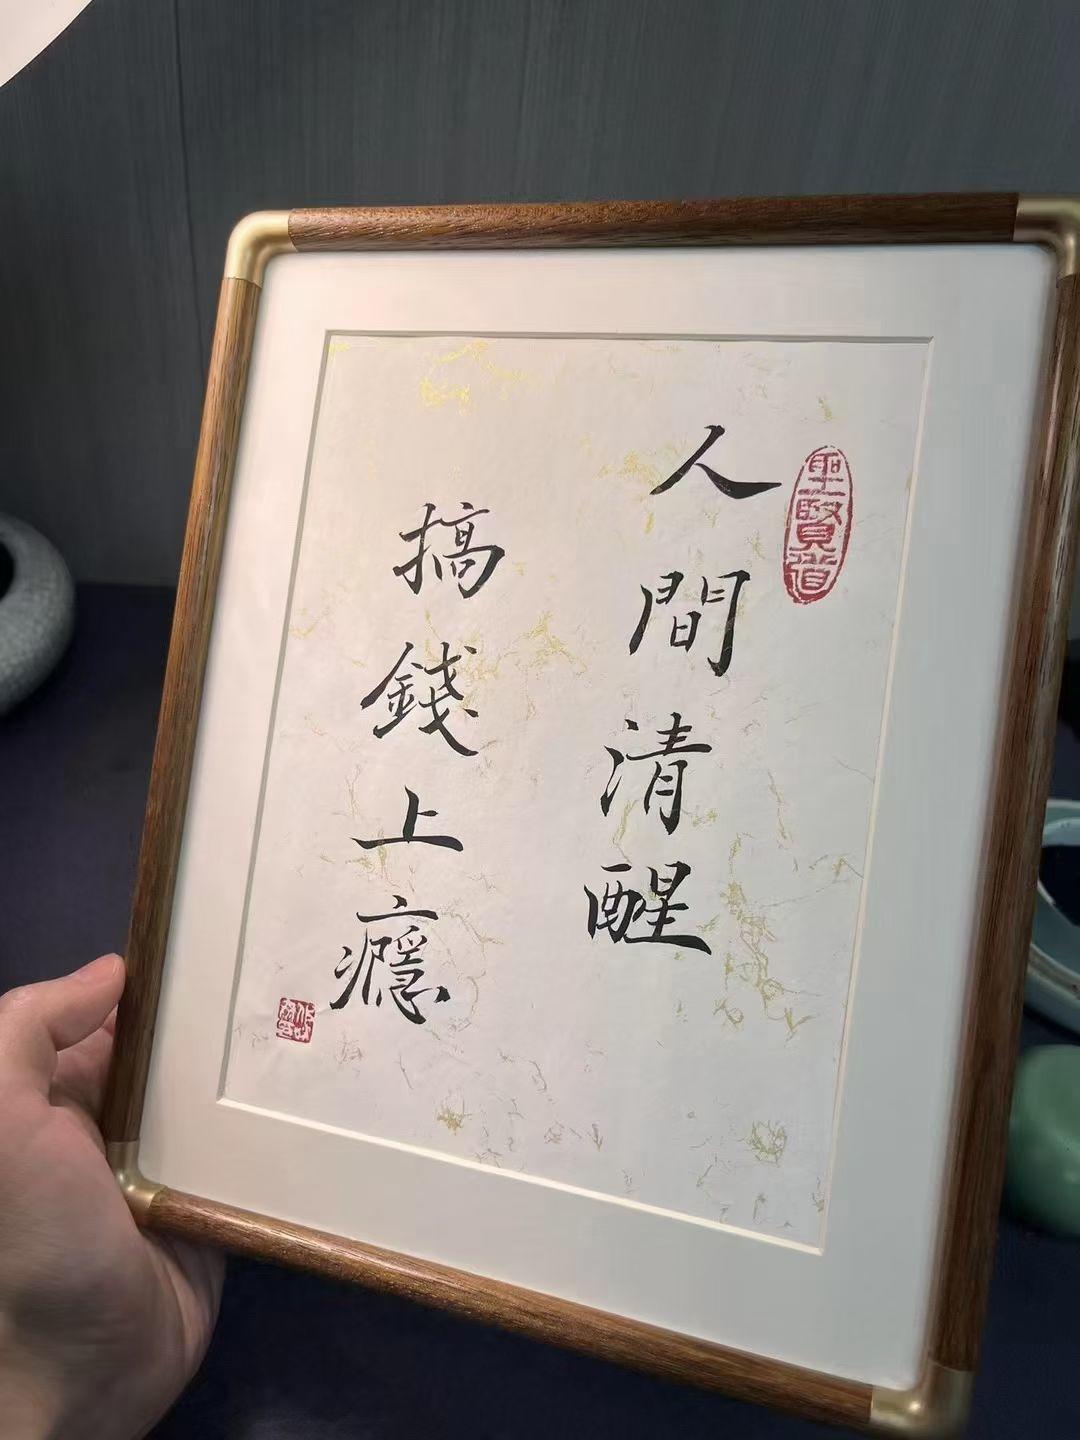 聖賢道
人間清醒
搞錢上癮